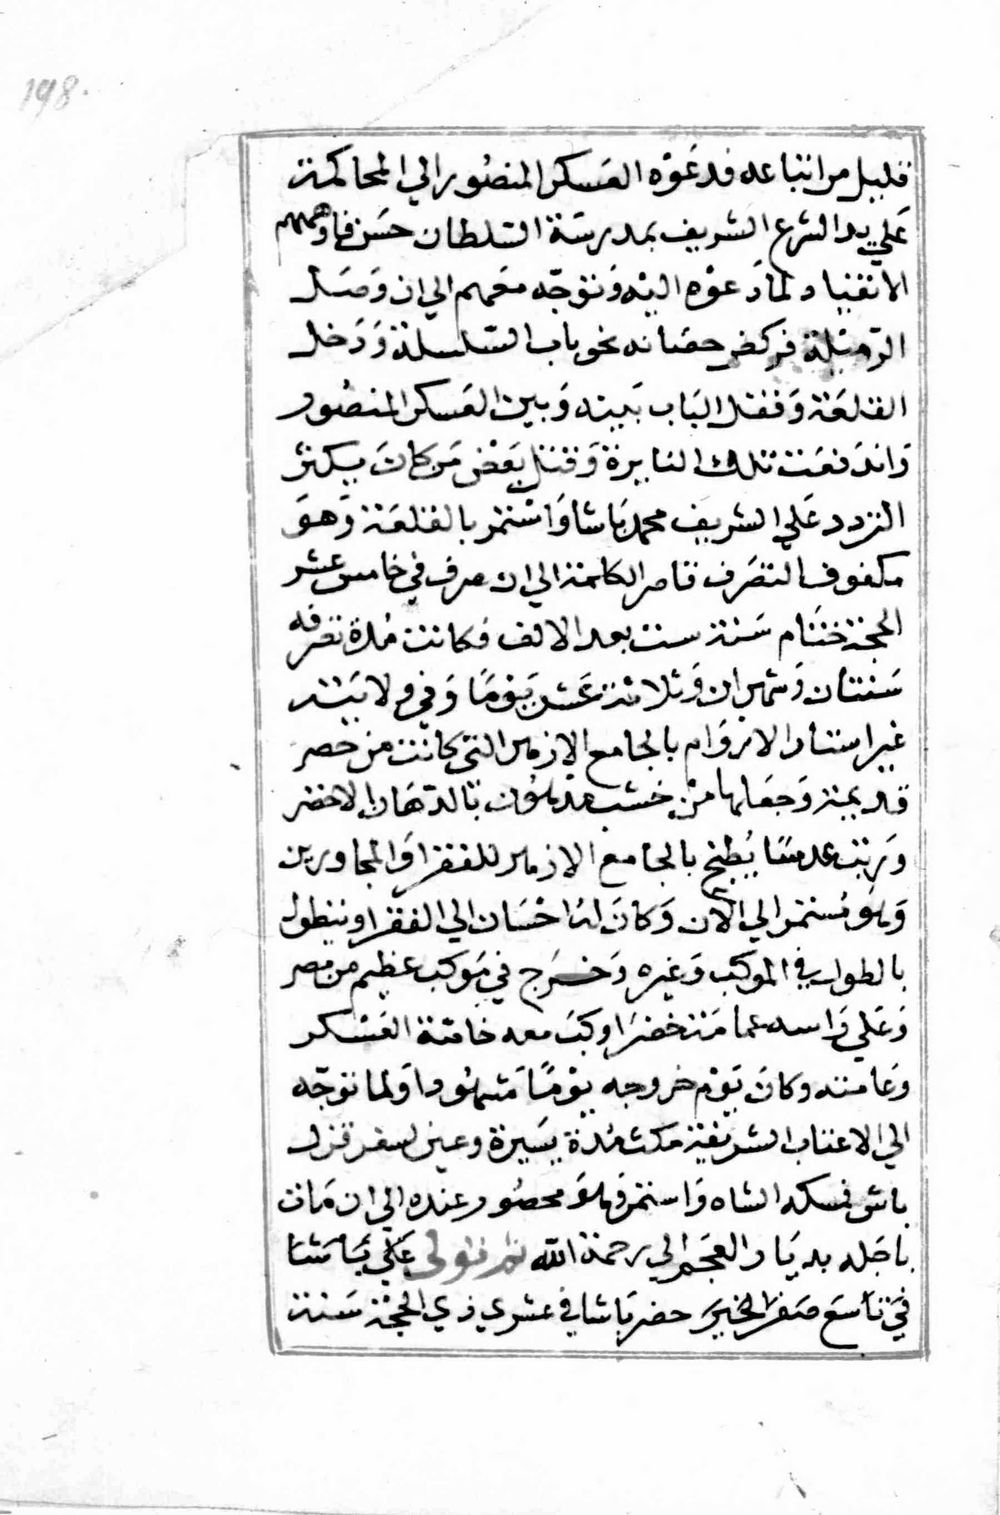 198.
قليل من اتباعه فدعوه العسكر المنصور الي المحاكمة
علي يد الشرع الشريف بمدرسة السلطان حسن فاوهمهم
الانقياد لما دعوه اليه وتوجه معهم الي ان وصل
الرميلة فركض حصانه نحو باب السلسلة ودخل
القلعة وقفل الباب بينه وبين العسكر المنصور
واندفعت تلك النايرة وقتل بعض من كان يكثر
التردد علي الشريف محمد باشا واستمر بالقلعة وهو
مكفوف التصرف قاصر الكلمة الي ان صرف في خامس عشر
الحجة ختام سنة ست بعد الالف فكانت مدة تصرفه
سنتان وشهران وثلاثة عشر يوما وفي ولايته
غير استار الاروام بالجامع الازهر التي كانت من حصر
قديمة وجعلها من خشب مدهون بالدهان الاخضر
ورتب عدسا يطبخ بالجامع الازهر للفقرا والمجاورين
وهو مستمر الي الان وكان له احسان الي الفقرا وينطول
بالطول في الموكب وغيره وخرج في موكب عظيم من مصر
وعلي راسه عمامة خضرا وركب معه خاصة العسكر
وعامته وكان يوم خروجه يوما مشهودا ولما توجه
الي الاعتاب الشريفة مكث مدة يسيرة وعين لسفر قزل
باش فمسكه الشاه واستمر وهو محصور عنده الي ان مات
باجله بديار العجم الي رحمة الله ثم تولي علي باشا
في تاسع صفر الخير حضر باشا في عشري ذي الحجة سنة